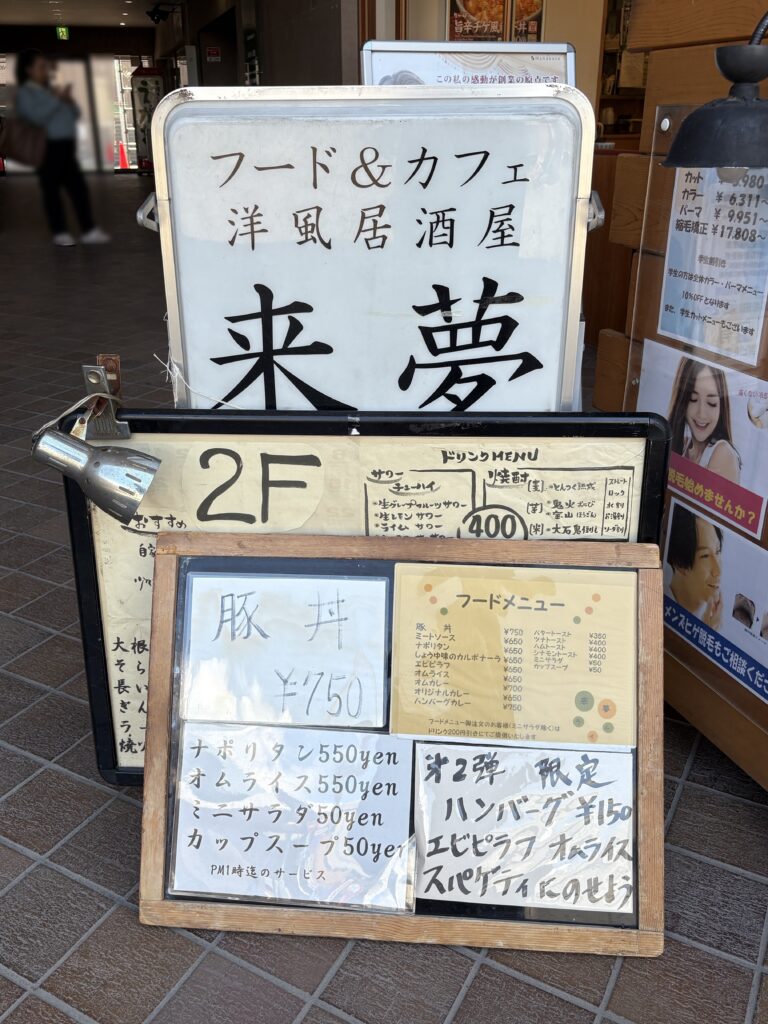 旨辛チゲ風
この私の感動が創業の原点です
フード＆カフェ
洋風居酒屋
来夢
2F
おすすめ
ドリンクMENU
サワー
チューハイ
生グレープフルーツサワー
生レモンサワー
ライムサワー
400
焼酎
[麦]
[芋]
[米]
ストレート
ロック
水割り
お湯割り
ソーダ割り
豚丼
¥750
フードメニュー
豚丼 ¥750
ミートソース ¥650
ナポリタン ¥650
しょうゆ味のカルボナーラ ¥650
エビピラフ ¥650
オムライス ¥650
オムカレー ¥700
オリジナルカレー ¥650
ハンバーグカレー ¥850
バタートースト ¥350
ツナトースト ¥400
ハムトースト ¥400
シナモントースト ¥400
ミニサラダ ¥50
カップスープ ¥50
フードメニュー御注文のお客様(ミニサラダ除く)は
ドリンク200円引きにてご提供いたします
ナポリタン550yen
オムライス550yen
ミニサラダ50yen
カップスープ50yen
PM1時迄のサービス
第2弾 限定
ハンバーグ¥150
エビピラフ オムライス
スパゲティにのせよう
カット
カラー ¥6,311~
パーマ ¥9,951~
縮毛矯正 ¥17,808~
学生割引き
学生の方は全体カラー・パーマメニュー
10%OFFとなります
また、学生カットメニューもございます
脱毛始めませんか？
メンズヒゲ脱毛もご相談ください